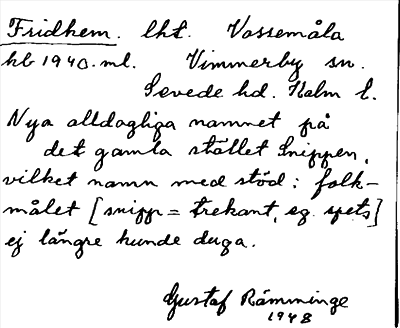 Fridhem. lht. Vassemåla
hb 1940. ml. Vimmerby sn.
Sevede hd. Kalm l.
Nya alldagliga namnet på
det gamla stället Snippen,
vilket namn med stöd i folk-
målet [snipp = trekant, eg. spets]
ej längre kunde duga.
Gustaf Rämminge
1948